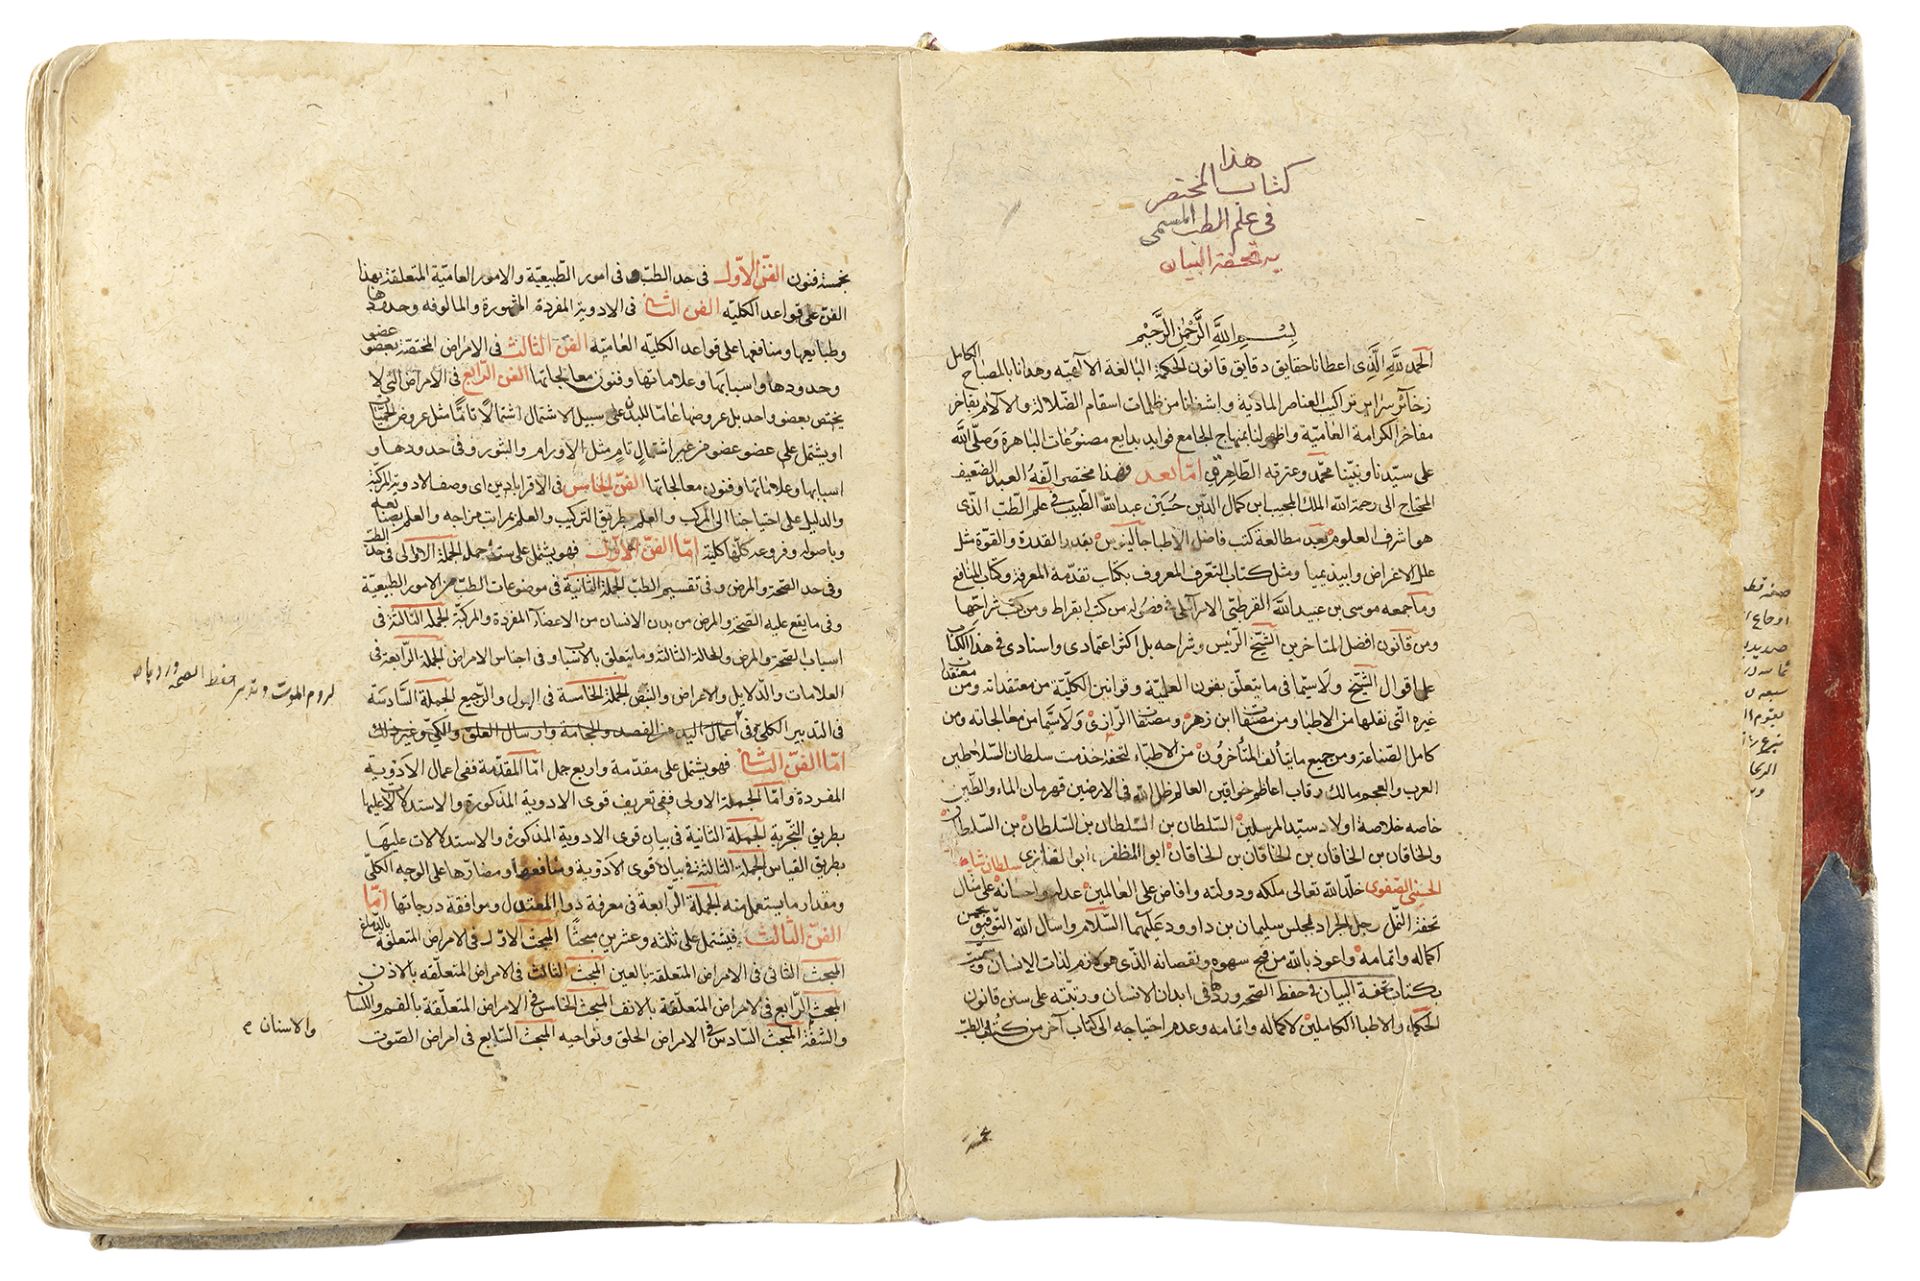 هذا
كتاب المختصر
في علم الطب المسمى
بتحفة البيان
بسم الله الرحمن الرحيم
الحمد لله الذي اعطانا حقايق دقايق قانون الحكمة البالغة الآلهيه وهدانا بالمصباح الكامل
ذخائر تراكيب العناصر المادية واشفانا من ظلمات اسقام الضلالة والآلام بمفاخر
مفاخر الكرامة العامية واظهر لنا بمنهاج الجامع فوايد بدايع مصنوعات الباهرة وصلى الله
على سيدنا ونبينا محمد وعترته الطاهرة اما بعد فهذا مختصر الفه العبد الضعيف
المحتاج الى رحمة الله الملك المجيب ابن كمال الدين حسين عبد الله الطبيب في علم الطب الذى
هو اشرف العلوم بعد مطالعة كتب فاضل الاطبا جالينوس بقدر القدرة والقوة مثل
علل الاعراض وابيذيميا ومثل كتاب التعرف المعروف بكتاب تقدمة المعرفة وكتاب المنافع
وما جمعه موسى بن عبيد الله القرطبى الاسرائيلى فى فصوله من كتب ابقراط ومن كتب شراحها
ومن قانون افضل المتاخرين الشيخ الرئيس وشراحه بل اكثر اعتمادى واسنادى فى هذا الكتاب
على اقوال الشيخ ولا سيما فى ما يتعلق بفنون العلمية وقوانين الكلية من معتقداته ومن معتقدات
غيره التى نقلها من الاطبا ومن مصنفات ابن زهر ومصنفات الرازى ولا سيما من معالجاته ومن
كامل الصناعة ومن جميع ما يتألف المتأخرون من الاطباء لتحفة خدمت سلطان السلاطين
العرب والعجم مالك رقاب اعاظم خواقين العالم ظل الله فى الارضين قهرمان الماء والطين
خاصه خلاصة اولاد سيد المرسلين السلطان بن السلطان بن السلطان بن السلطان
والخاقان بن الخاقان بن الخاقان بن الخاقان ابو المظفر ابو الغازى سلطان شاه
الحسينى الصفوى خلد الله تعالى ملكه ودولته وافاض على العالمين عدله واحسانه على مثال
تحفة النمل رجل الجراد لمجلس سليمان بن داوود عليهما السلام واسال الله التوفيق بحسن
اكماله واتمامه واعوذ بالله من قبح سهوه ونقصانه الذى هو لازم لذات الانسان وسميته
بكتاب تحفة البيان فى حفظ الصحة وردها فى ابدان الانسان ورتبته على سنن قانون
الحكماء والاطبا الكاملين لاكماله واتمامه وعدم احتياجه الى كتاب آخر من كتب الطب
بخمسة فنون الفن الاول فى حد الطب وفى امور الطبيعية والامور العامية المتعلقة بهذا
الفن على قواعد الكليه الفن الثانى فى الادوية المفردة المشهورة والمالوفه وحدودها
وطبايعها ومنافعها على قواعد الكليه العاميه الفن الثالث فى الامراض المختصة بعضو عضو
وحدودها واسبابها وعلاماتها وفنون معالجاتها الفن الرابع فى الامراض التى لا
يختص بعضو واحد بل عروضها عاما للبدن على سبيل الاشتمال اشتمالا تاما مثل عروض الحميات
او يشتمل على عضو عضو من غير اشتمال تام مثل الاورام والبثور وفى حدودها و
اسبابها وعلاماتها وفنون معالجاتها الفن الخامس فى الاقراباذين اى وصف الادوية المركبة
والدليل على احتياجنا الى المركب والعلم بطريق التركيب والعلم بمراتب مزاجه والعلم بصناعته
وباصوله وفروعه كلها كلية اما الفن الاول فهو يشتمل على ستة جمل الجملة الاولى فى حد الطب
وفى حد الصحة والمرض وفى تقسيم الطب الجملة الثانية فى موضوعات الطب من الامور الطبيعية
وفى ما يقع عليه الصحة والمرض من بدن الانسان من الاعضاء المفردة والمركبة الجملة الثالثة فى
اسباب الصحة والمرض والحالة الثالثة وما يتعلق بالاسباب وفى اجناس الامراض الجملة الرابعة فى
العلامات والدلايل والاعراض والنبض الجملة الخامسة فى البول والرجيع الجملة السادسة
فى التدبير الكلى وفى اعمال اليد من الفصد والحجامة وارسال العلق والكى وغير ذلك
اما الفن الثانى فهو يشتمل على مقدمة واربع جمل اما المقدمة ففى اعمال الادوية
المفردة واما الجملة الاولى ففى تعريف قوى الادوية المذكورة والاستدلالات عليها
بطريق التجربة الجملة الثانية فى بيان قوى الادوية المذكورة والاستدلالات عليها
بطريق القياس الجملة الثالثة فى بيان قوى الادوية ومنافعها ومضارها على الوجه الكلى
ومقدار ما يستعمل منه الجملة الرابعة فى معرفة دواء المعتدل وموافقة درجاتها اما
الفن الثالث فيشتمل على ثلثه وعشرين مبحثا المبحث الاول فى الامراض المتعلقة بالدماغ
المبحث الثانى فى الامراض المتعلقة بالعين المبحث الثالث فى الامراض المتعلقه بالاذن
المبحث الرابع فى الامراض المتعلقة بالانف المبحث الخامس فى الامراض المتعلقة بالفم واللسان
والشفة المبحث السادس فى الامراض الحلق ونواحيه المبحث السابع فى امراض الصوت
لزوم الموت وتدبير حفظ الصحة
والاسنان